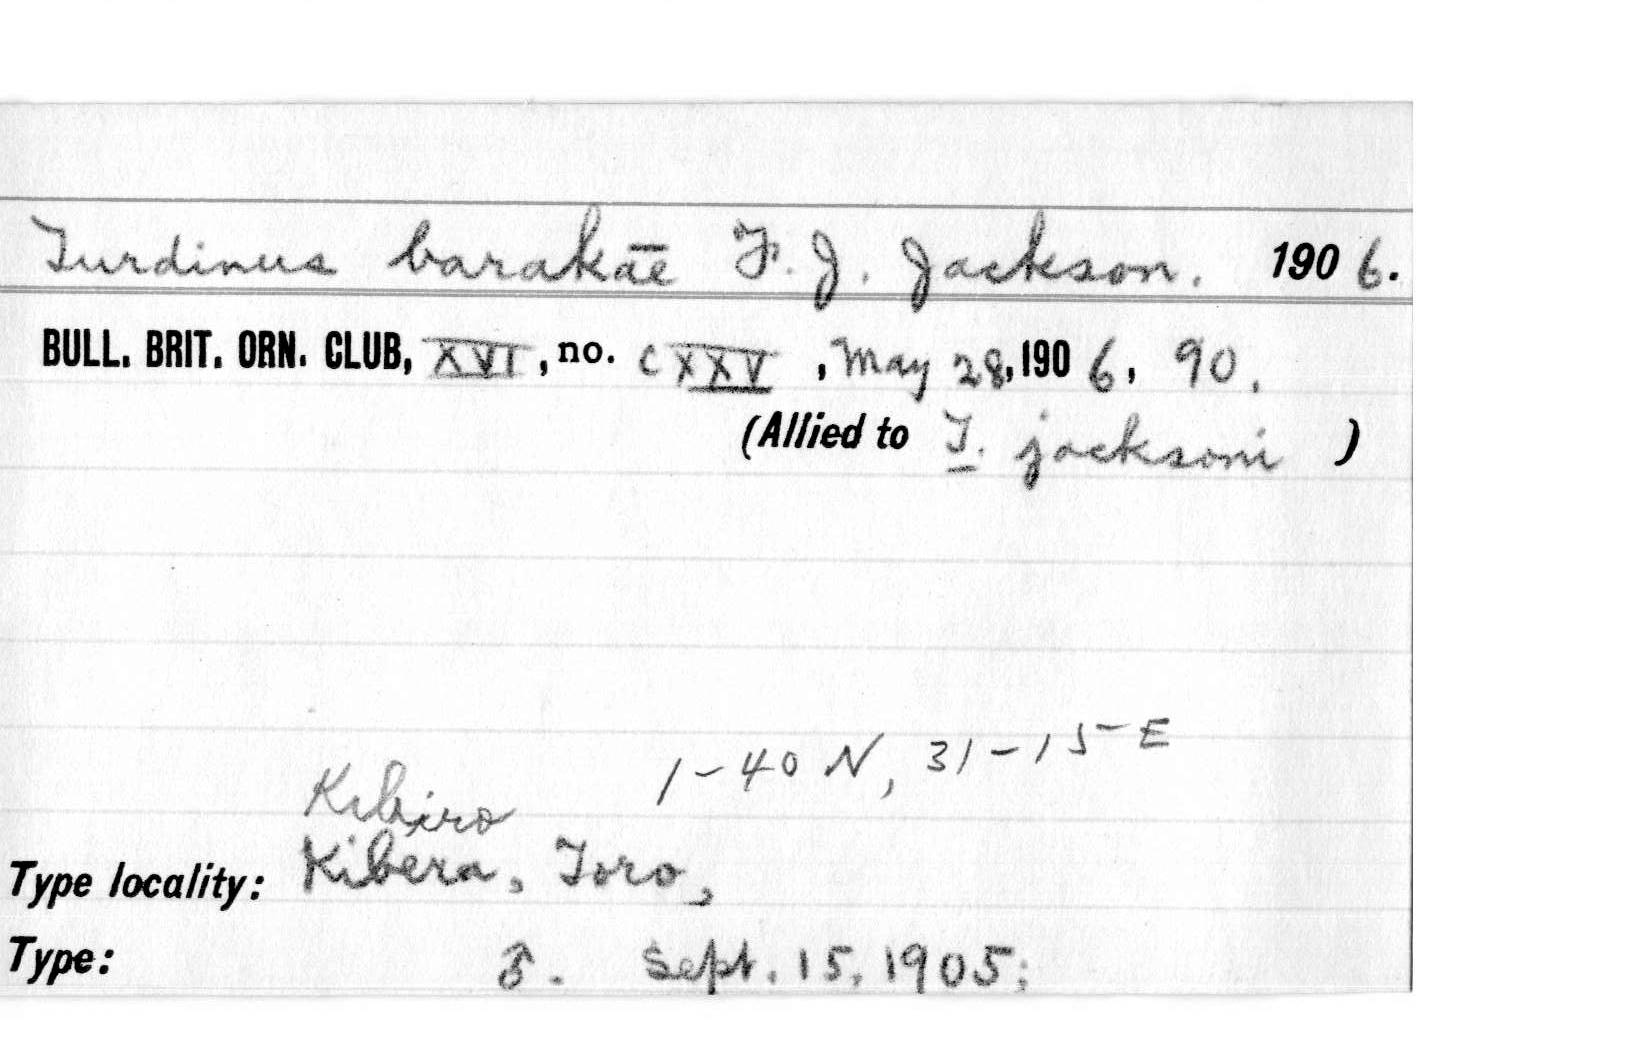 Turdinus barakae F. J. Jackson. 1906.
BULL. BRIT. ORN. CLUB, XVI, no. CXXV, May 28, 1906, 90.
(Allied to T. jacksoni )
1-40 N, 31-15 E
Kibiro
Type locality: Kibera, Toro,
Type: ♂. Sept. 15, 1905;